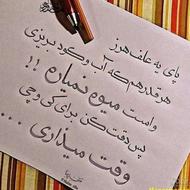 پای یه علف هرز
هر قدر هم که آب و کود بریزی
واست میوه نمیدن !!
پس دقت کن برای کی و چی
وقت میذاری ...